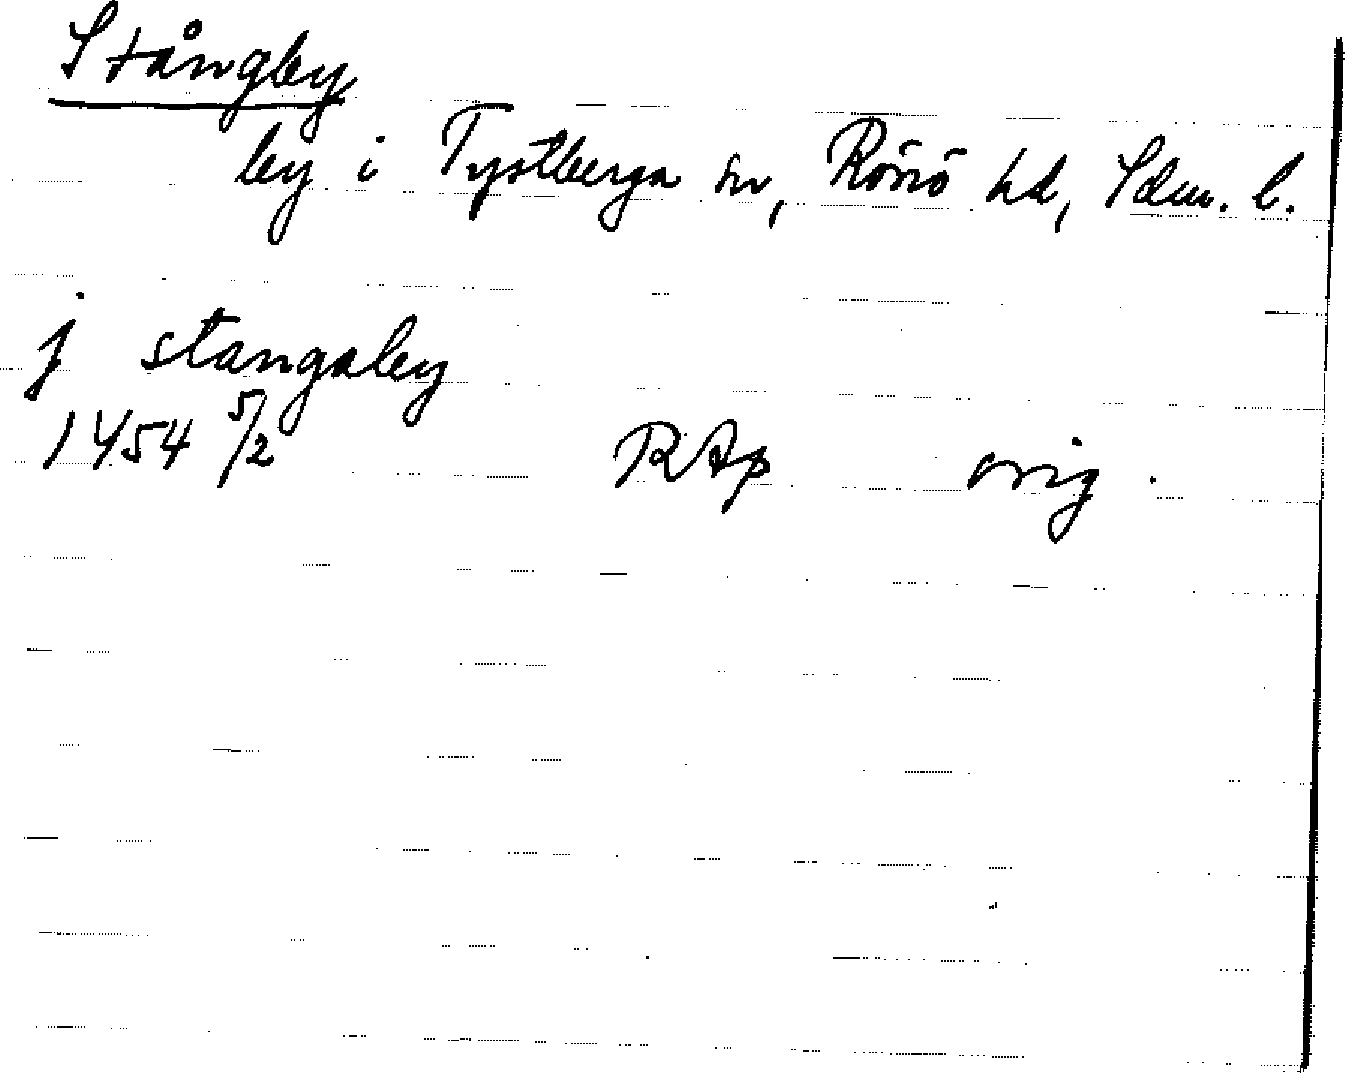 Stångby
by i Tystberga sn, Rönö hd, Sdm. l.
j stangaby
1454 5/2 RAp orig.